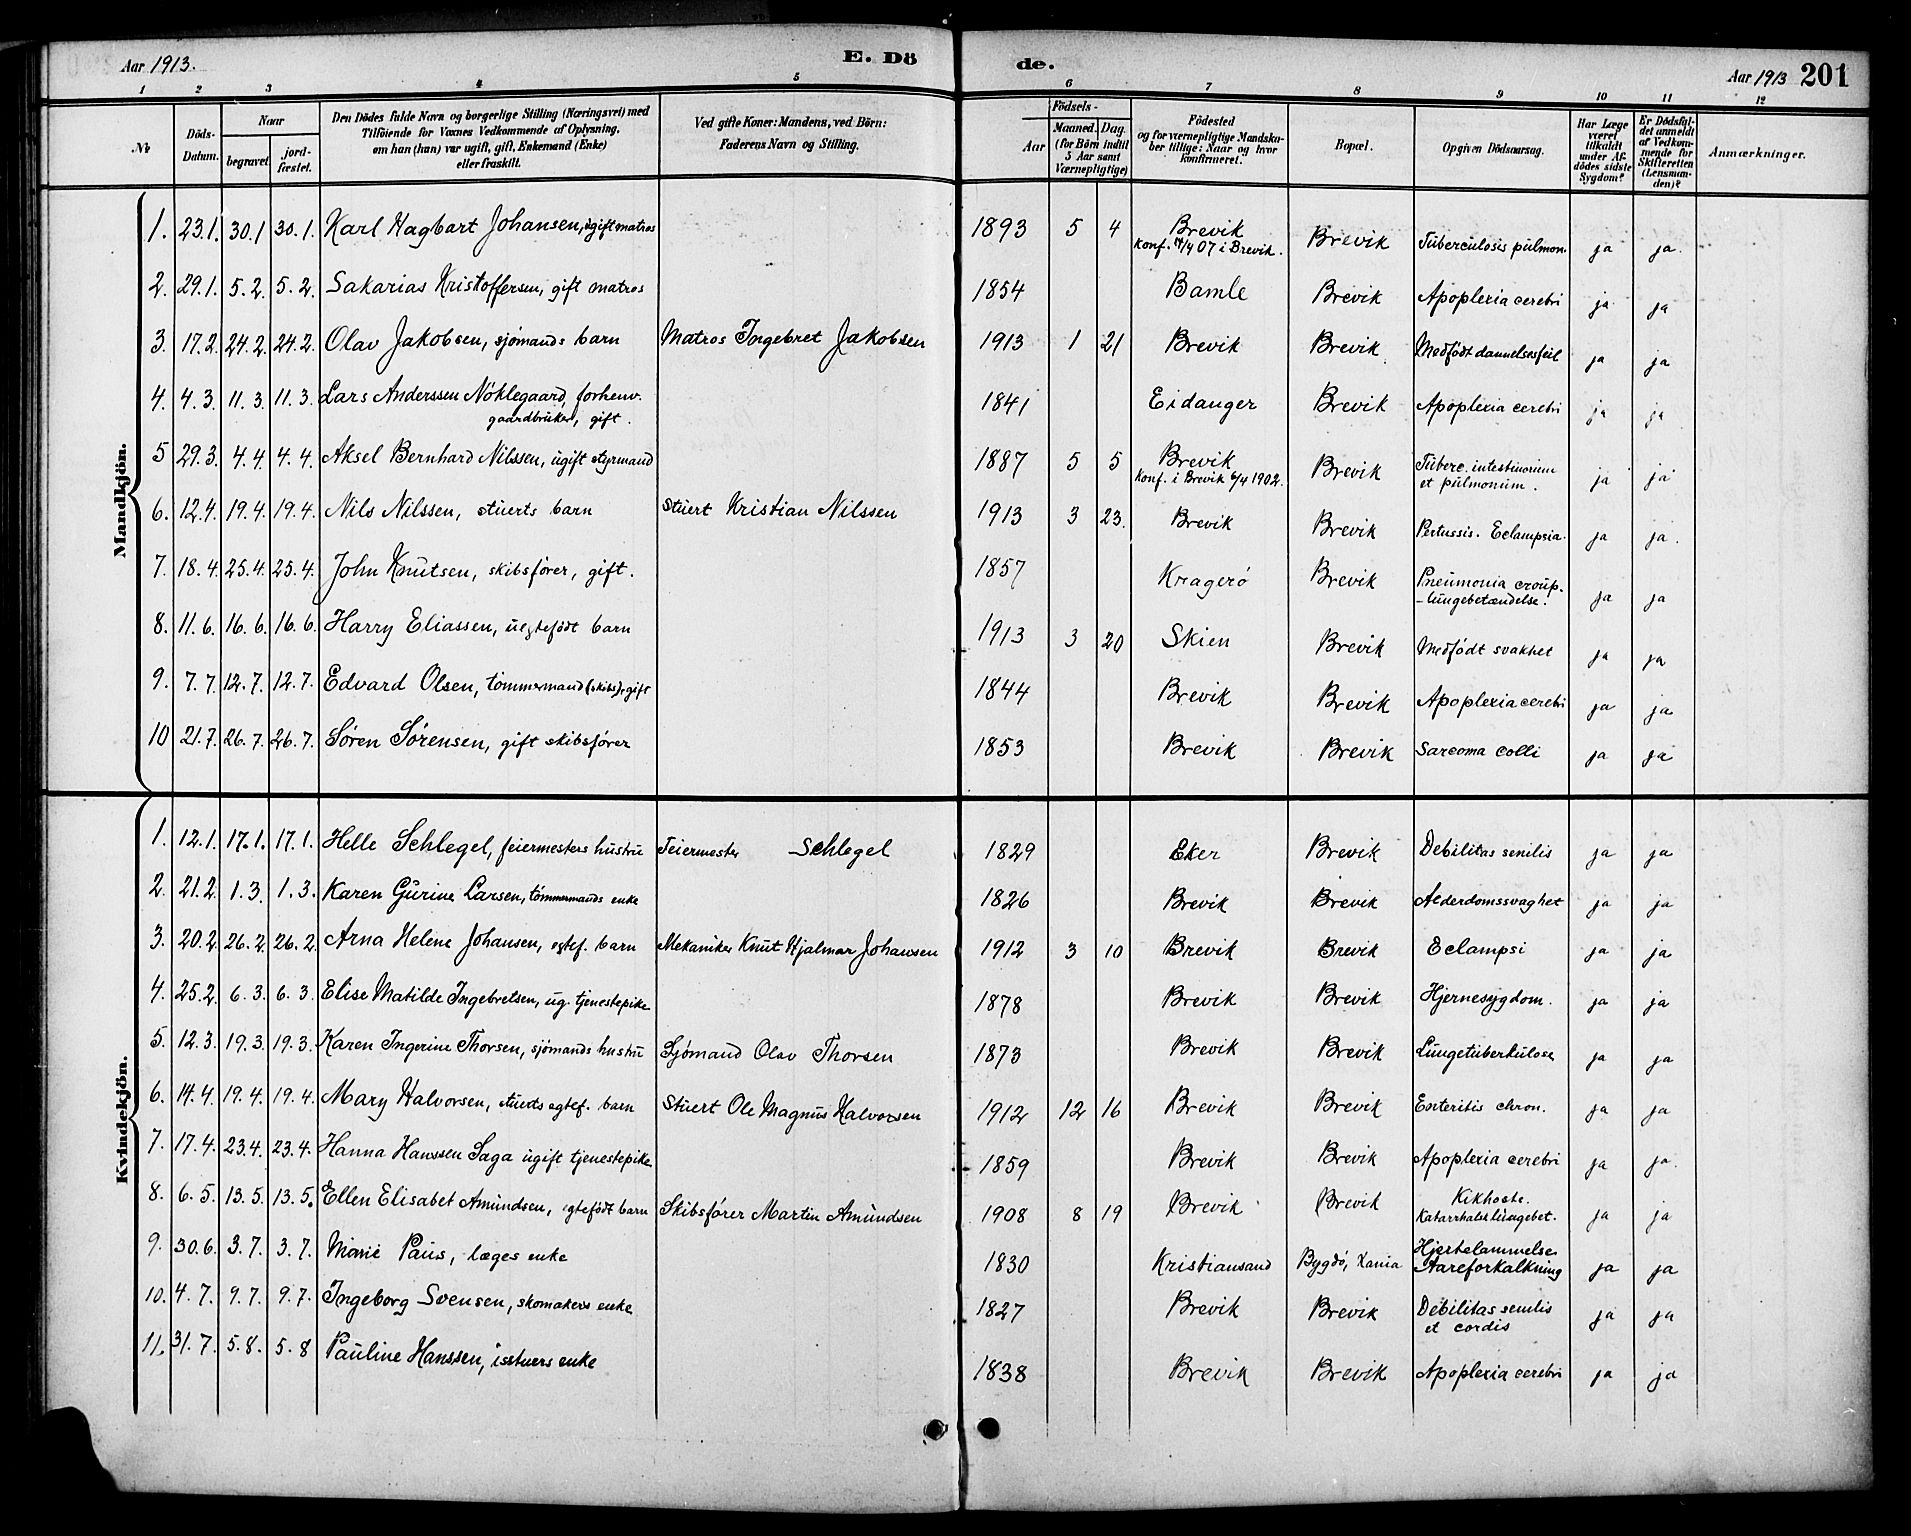 Aar 1913. E. Dö de. Aar 1913 201
1 2 3 4 5 6 7 8 9 10 11 12
No | Döds-Datum. | Naar begravet. | jord-fæstet. | Den Dödes fulde Navn og borgerlige Stilling (Næringsvei) med Tilföiende for Voxnes Vedkommende af Oplysning, om han (hun) var ugift, gift, Enkemand (Enke) eller fraskilt. | Ved gifte Koner: Mandens, ved Börn: Faderens Navn og Stilling. | Födsels- Aar | Maaned. | Dag. (for Börn indtil 5 Aar samt Værnepligtige) | Födested og for værnepligtige Mandskaber tillige: Naar og hvor konfirmeret. | Bopæl. | Opgiven Dödsaarsag. | Har Læge været tilkaldt under Afdödes sidste Sygdom? | Er Dödsfaldet anmeldt af Vedkommende for Skifteretten (Lensmanden)? | Anmærkninger.
Mandkjön.
1. 23.1. 30.1 30.1. Karl Hagbart Johansen, ugift matros 1893 5 4 Brevik konf. 07 i Brevik. Brevik Tuberculosis pulmon. ja ja.
2. 29.1. 5.2. 5.2. Sakarias Kristoffersen, gift matros 1854 Bamle Brevik Apoplexia cerebri ja ja
3. 17.2. 24.2. 24.2. Olav Jakobsen, sjömands barn Matros Ingebret Jakobsen 1913 1 21 Brevik Brevik Medfödt dannelsesfeil ja ja
4. 4.3. 11.3. 11.3. Lars Anderssen Nöklegaard, forhenv. gaardbruker, gift. 1841 Eidanger Brevik Apoplexia cerebri ja ja
5 29.3. 4.4. 4.4. Aksel Bernhard Nilssen, ugift styrmand 1887 5 5 Brevik konf. i Brevik 6/4 1902. Brevik Tuberc. intestinorum et pulmonum. ja ja
6. 12.4. 19.4. 19.4. Nils Nilssen, stuerts barn Stuert Kristian Nilssen 1913 3 23. Brevik Brevik Pertussis. Eclampsia. ja ja.
7. 18.4. 25.4. 25.4. John Knutsen, skibsfører, gift. 1857 Kragerö Brevik Pneumonia croup. - lungebetændelse. ja ja
8. 11.6. 16.6. 16.6. Harry Eliassen, uegtefödt barn 1913 3 20 Skien Brevik Medfödt svakhet ja ja
9. 7.7. 12.7. 12.7. Edvard Olsen, tömmermand (skibs), gift 1844 Brevik Brevik Apoplexia cerebri ja ja
10 21.7. 26.7. 26.7. Søren Sørensen, gift skibsfører 1853 Brevik Brevik Sarcoma colli ja ja
Kvindekjön.
1. 12.1. 17.1. 17.1. Helle Schlegel, feiermesters hustru Feiermester Schlegel 1829 Eker Brevik Debilitas senilis ja ja
2. 21.2. 1.3. 1.3. Karen Gurine Larsen, tömmermands enke 1826 Brevik Brevik Alderdomssvaghet ja ja
3. 20.2. 26.2. 26.2. Arna Helene Johansen, egtef. barn Mekaniker Knut Hjalmar Johansen 1912 3 10 Brevik Brevik Eclampsi ja ja
4. 25.2. 6.3. 6.3. Elise Matilde Ingebretsen, ug. tjenestepike 1878 Brevik Brevik Hjernesygdom. ja ja
5. 12.3. 19.3. 19.3. Karen Ingerine Thorsen, sjömands hustru Sjömand Olav Thorsen 1873 Brevik Brevik Lungetuberkulose ja ja
6. 14.4. 19.4. 19.4. Mary Halvorsen, stuerts egtef. barn Stuert Ole Magnus Halvorsen 1912 12 16 Brevik Brevik Enteritis chron. ja ja
7. 17.4. 23.4. 23.4. Hanna Hanssen Saga ugift tjenestepike 1859 Brevik Brevik Apoplexia cerebri ja ja.
8. 6.5. 13.5. 13.5. Ellen Elisabet Amundsen, egtefödt barn Skibsfører Martin Amundsen 1908 8 19 Brevik Brevik Kikhoste. Katarrhalsk lungebet. ja ja
9. 30.6. 3.7. 3.7. Marie Paus, læges enke 1830 Kristiansand Bygdö, Xania Hjertelammelse Aareforkalkning ja ja
10. 4.7. 9.7. 9.7. Ingeborg Svensen, skomakers enke 1827 Brevik Brevik Debilitas senilis et cordis ja ja
11. 31.7. 5.8. 5.8 Pauline Hanssen, isstuers enke 1838 Brevik Brevik Apoplexia cerebri ja ja